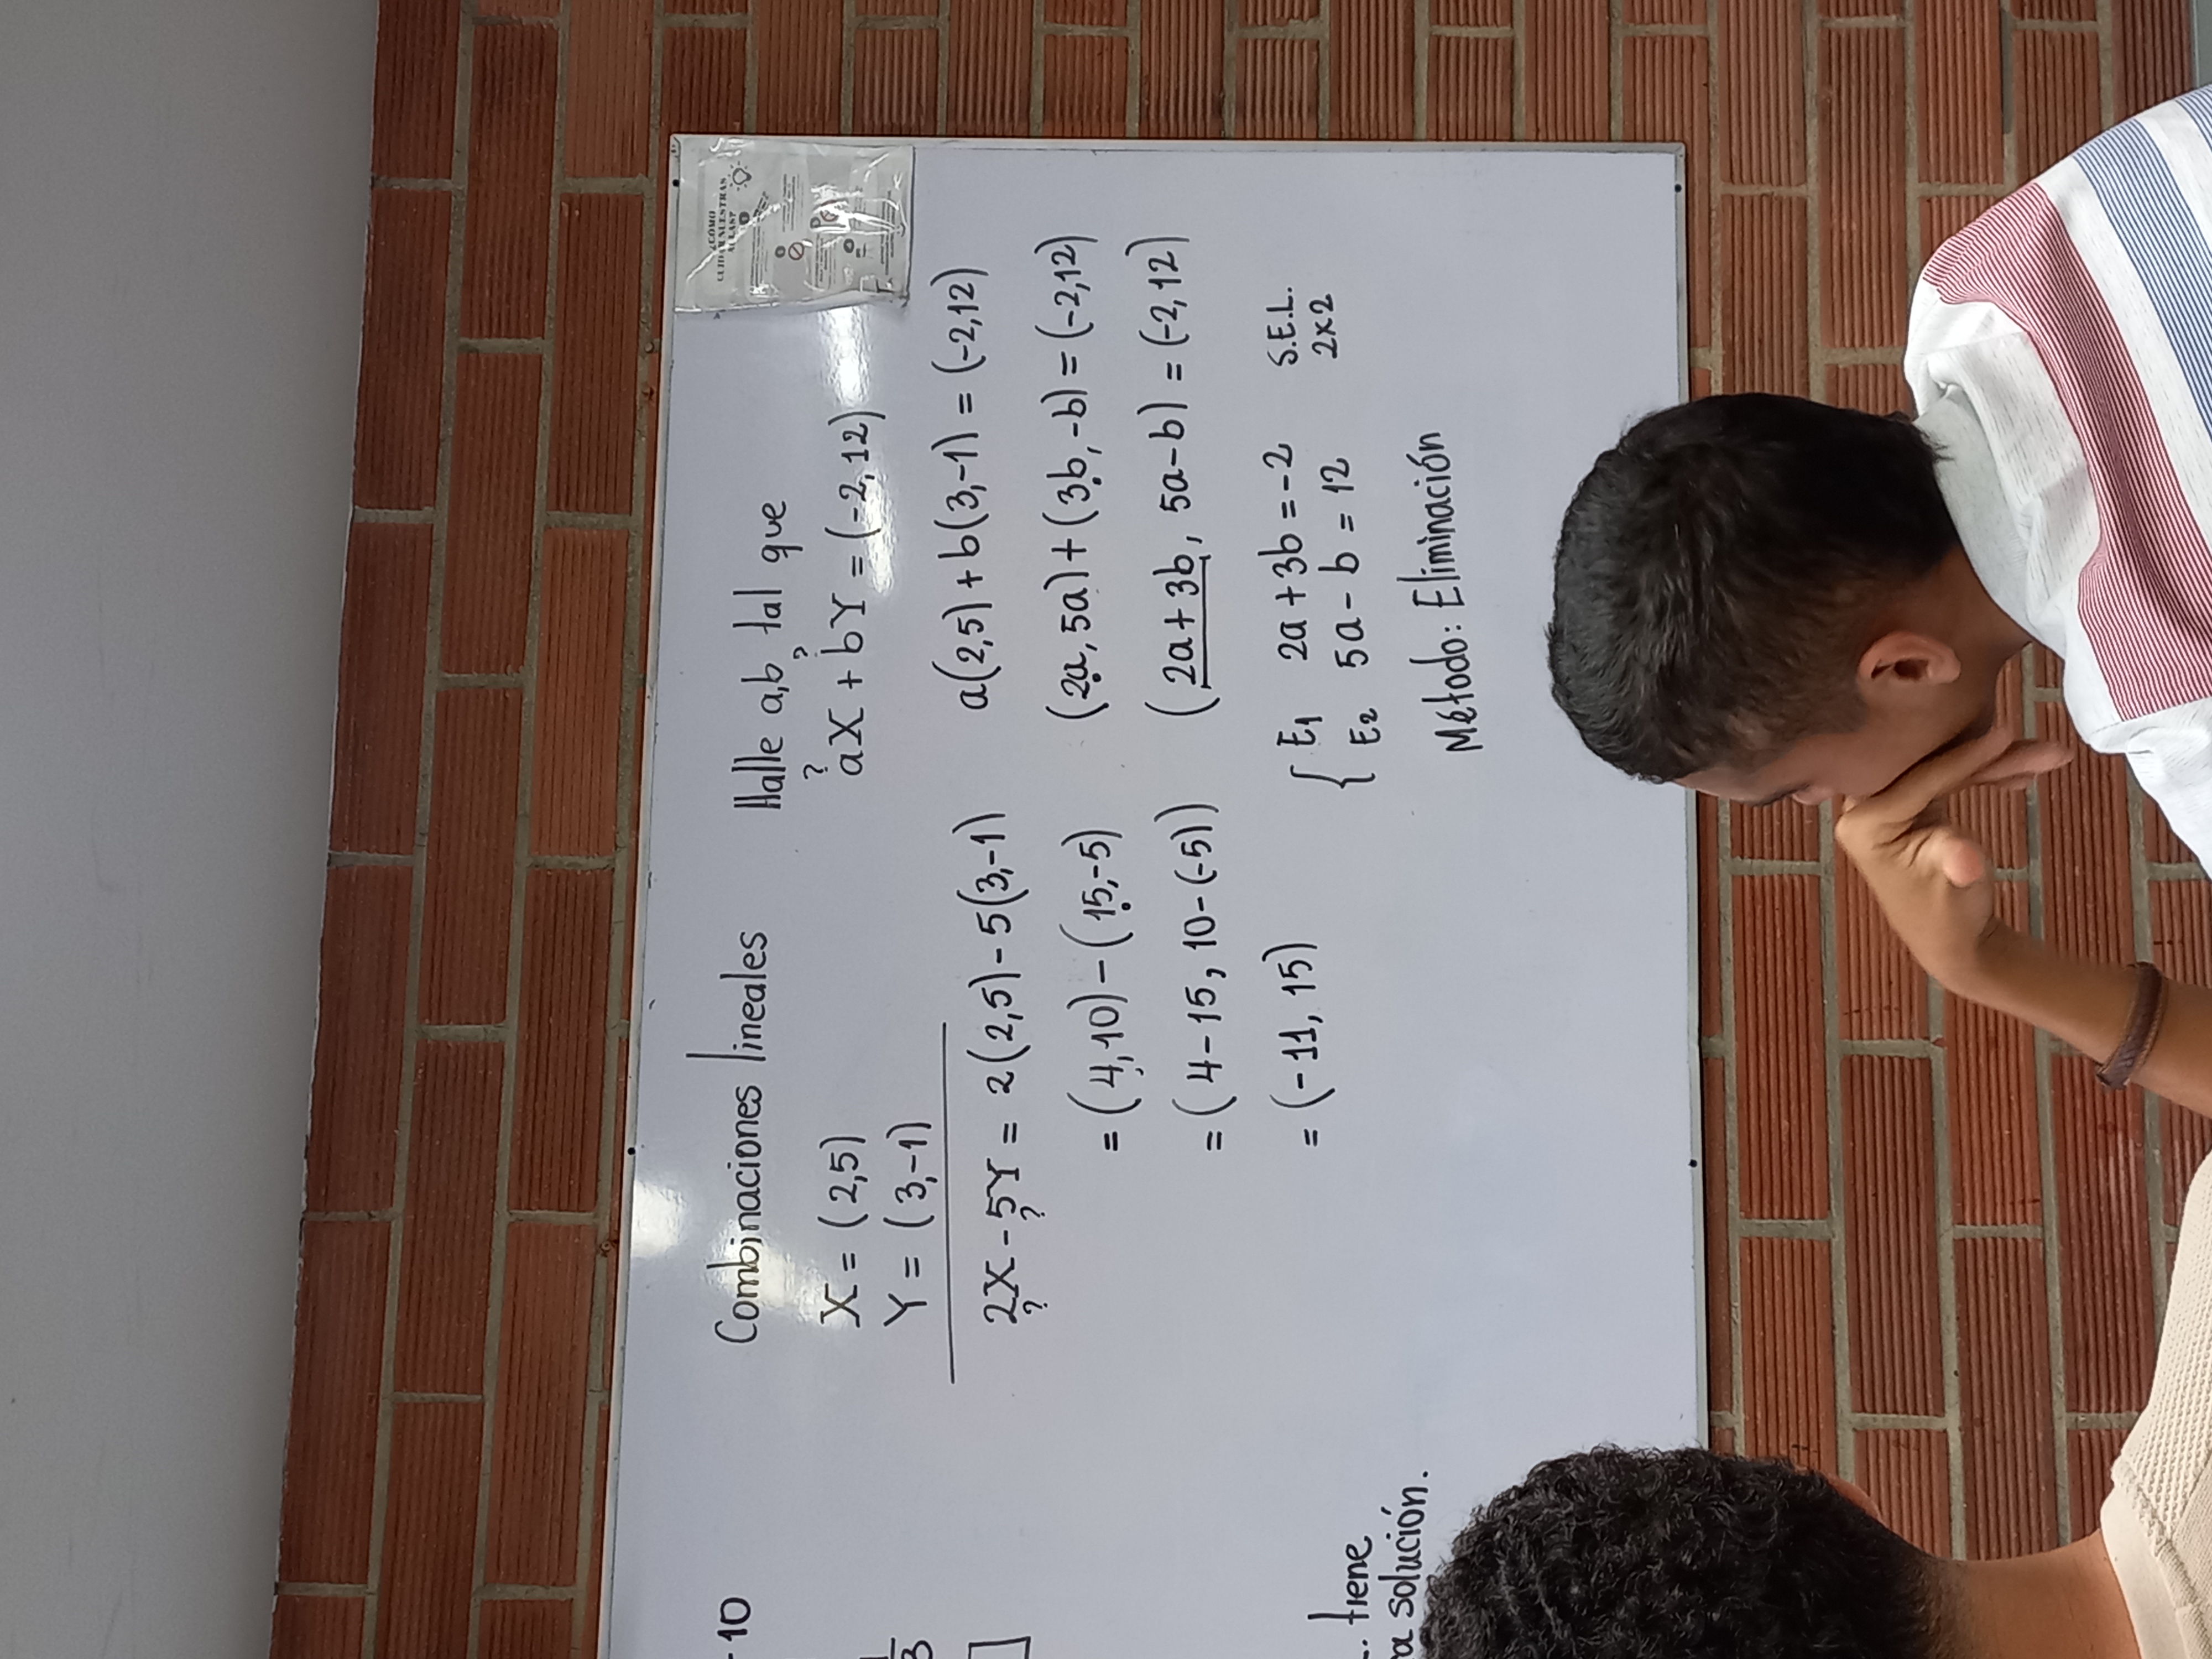 -10
1
3
... tiene
a solución.
Combinaciones lineales
X = (2,5)
Y = (3,-1)
2X - 5Y = 2(2,5) - 5(3,-1)
? ?
= (4,10) - (15,-5)
= (4-15, 10-(-5))
= (-11, 15)
Halle a,b tal que
? ?
aX + bY = (-2, 12)
a(2,5) + b(3,-1) = (-2,12)
(2a, 5a) + (3b, -b) = (-2,12)
(2a+3b, 5a-b) = (-2,12)
E1 2a + 3b = -2 S.E.L.
E2 5a - b = 12 2x2
Método: Eliminación
¿CÓMO
CUIDAR NUESTRAS
AULAS?